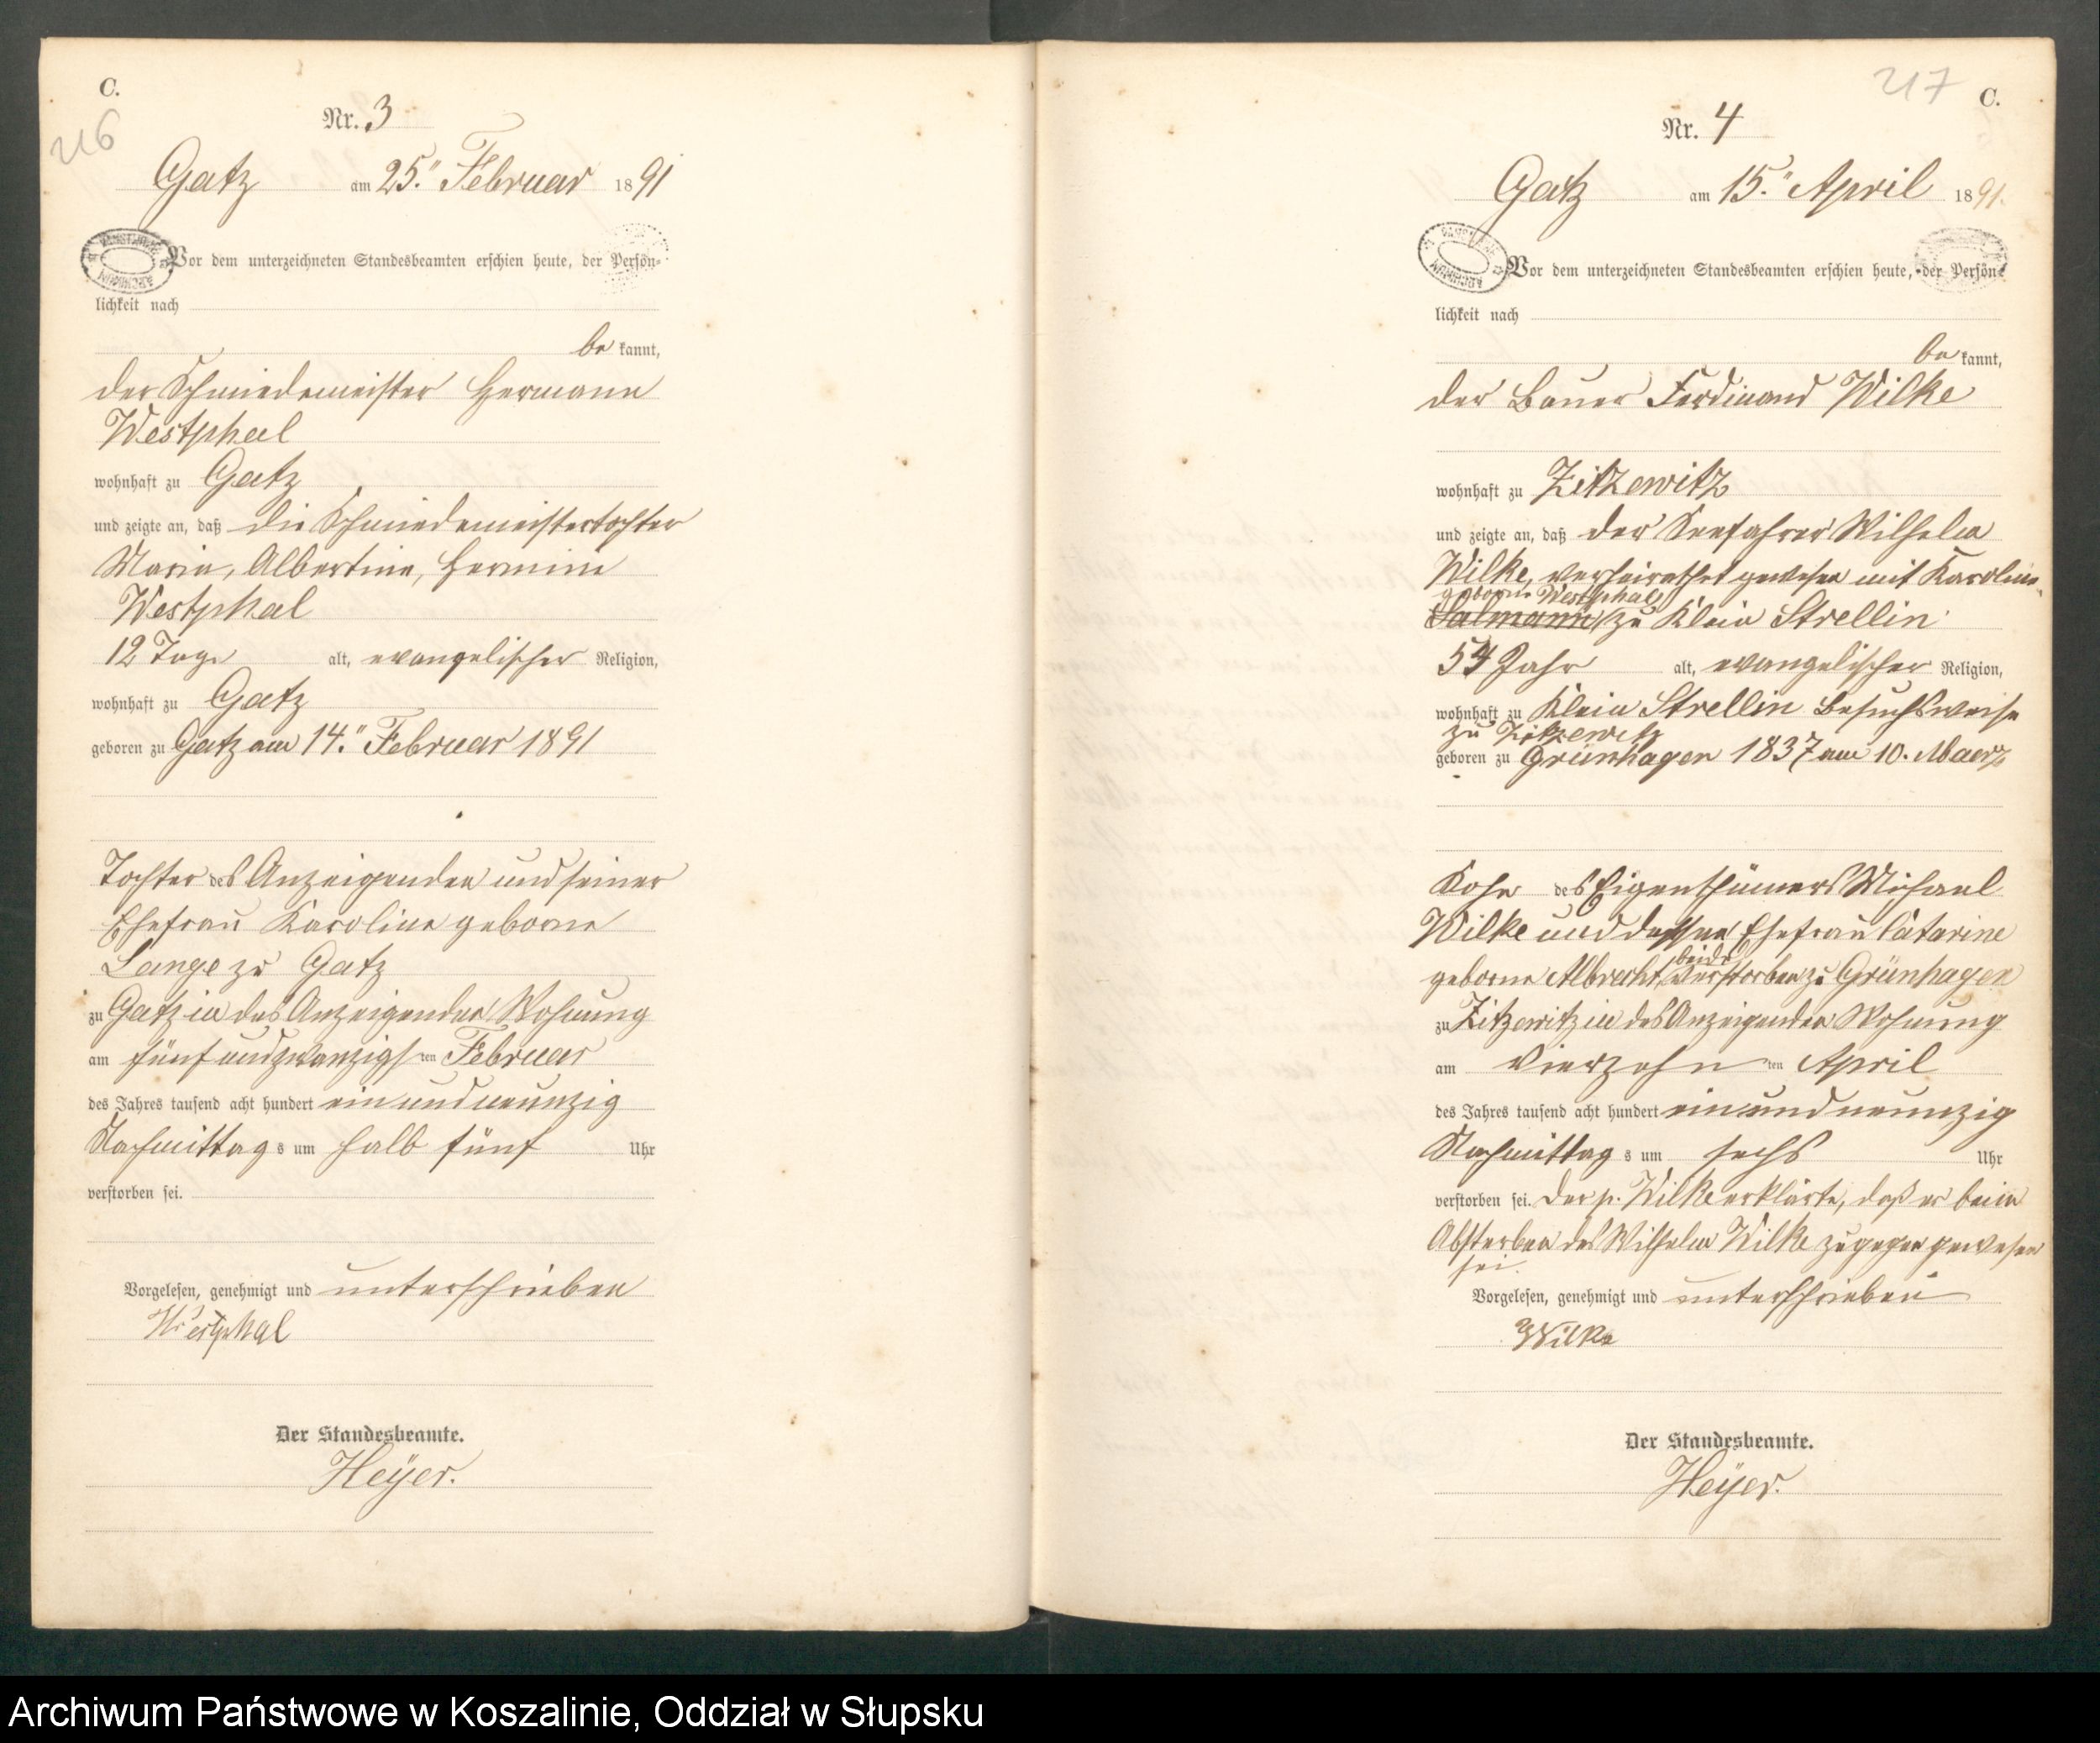 C.
216
Nr. 3
Gatz am 25." Februar 1891
Vor dem unterzeichneten Standesbeamten erschien heute, der Persön-
lichkeit nach
be kannt,
der Schmiedemeister Hermann
Westphal
wohnhaft zu Gatz
und zeigte an, daß die Schmiedemeistertochter
Marie, Albertine, Hermine
Westphal
12 Tage alt, evangelischer Religion,
wohnhaft zu Gatz
geboren zu Gatz am 14." Februar 1891
Tochter des Anzeigenden und seiner
Ehefrau Karoline geborne
Lange zu Gatz
zu Gatz in des Anzeigenden Wohnung
am fünfundzwanzigsten Februar
des Jahres tausend acht hundert einundneunzig
Nachmittags um halb fünf Uhr
verstorben sei.
Vorgelesen, genehmigt und unterschrieben
Westphal
Der Standesbeamte.
Heyer.
217
C.
Nr. 4
Gatz am 15." April 1891.
Vor dem unterzeichneten Standesbeamten erschien heute, der Persön-
lichkeit nach
be kannt,
der Bauer Ferdinand Wilke
wohnhaft zu Zitzewitz
und zeigte an, daß der Seefahrer Wilhelm
Wilke, verheirathet gewesen mit Karoline
geborne Westphal
Salmann zu Klein Strellin
54 Jahr alt, evangelischer Religion,
wohnhaft zu Klein Strellin besuchsweise
zu Zitzewitz
geboren zu Grünhagen 1837 am 10. Maerz
Sohn des Eigenthümers Michael
Wilke und dessen Ehefrau Catarine
beide
geborne Albrecht, verstorben zu Grünhagen
zu Zitzewitz in des Anzeigenden Wohnung
am vierzehnten April
des Jahres tausend acht hundert einundneunzig
Nachmittags um sechs Uhr
verstorben sei. Der p. Wilke erklärte, daß er beim
Absterben des Wilhelm Wilke zugegen gewesen
sei.
Vorgelesen, genehmigt und unterschrieben
Wilke
Der Standesbeamte.
Heyer.
Archiwum Państwowe w Koszalinie, Oddział w Słupsku